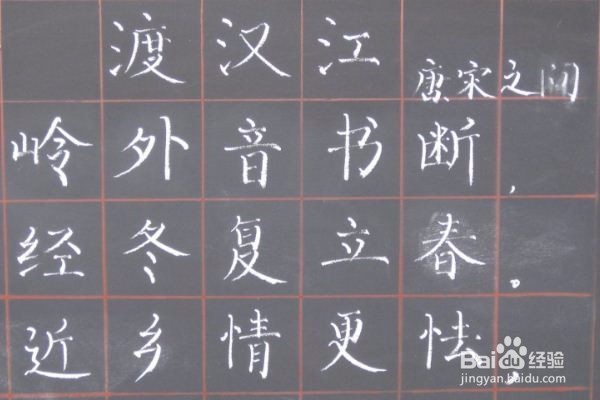 渡汉江
唐宋之问
岭外音书断，
经冬复立春。
近乡情更怯，
Baidu 经验
jingyan.baidu.com